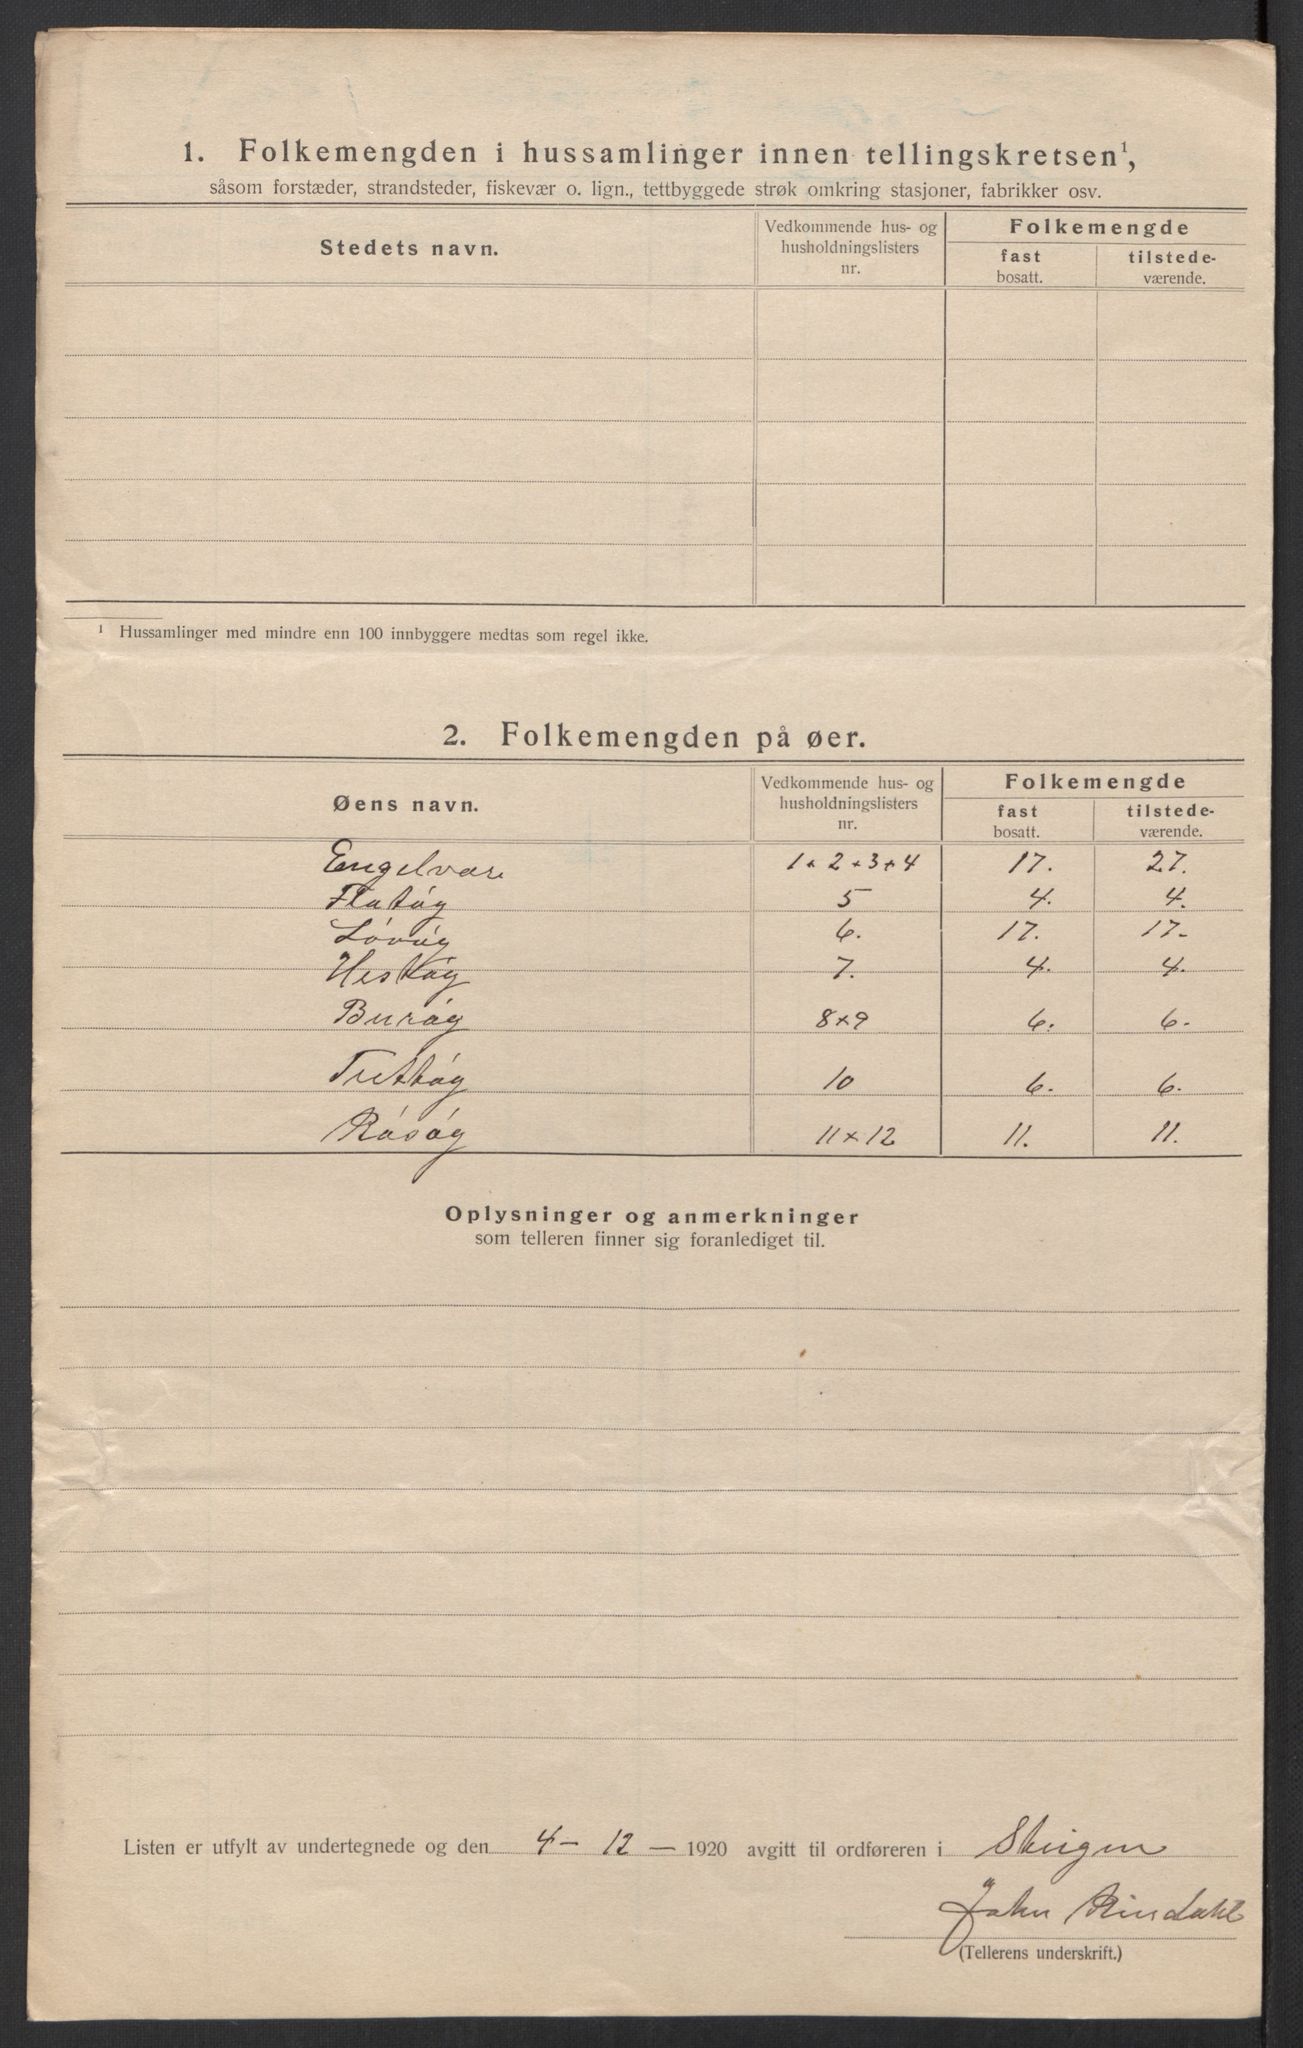 1. Folkemengden i hussamlinger innen tellingskretsen¹,
såsom forstæder, strandsteder, fiskevær o. lign., tettbyggede strøk omkring stasjoner, fabrikker osv.
Stedets navn.
Vedkommende hus- og husholdningslisters nr.
Folkemengde
fast bosatt.
tilstede-værende.
¹ Hussamlinger med mindre enn 100 innbyggere medtas som regel ikke.
2. Folkemengden på øer.
Øens navn.
Vedkommende hus- og husholdningslisters nr.
Folkemengde
fast bosatt.
tilstede-værende.
Engelvær 1+2+3+4 17. 27.
Flatöy 5 4. 4.
Lövöy 6. 17. 17-
Hestöy 7. 4. 4.
Buröy 8+9 6. 6.
Trettöy 10 6. 6.
Rösöy 11+12 11. 11.
Oplysninger og anmerkninger
som telleren finner sig foranlediget til.
Listen er utfylt av undertegnede og den 4-12 — 1920 avgitt til ordføreren i Steigen
John Rindahl
(Tellerens underskrift.)